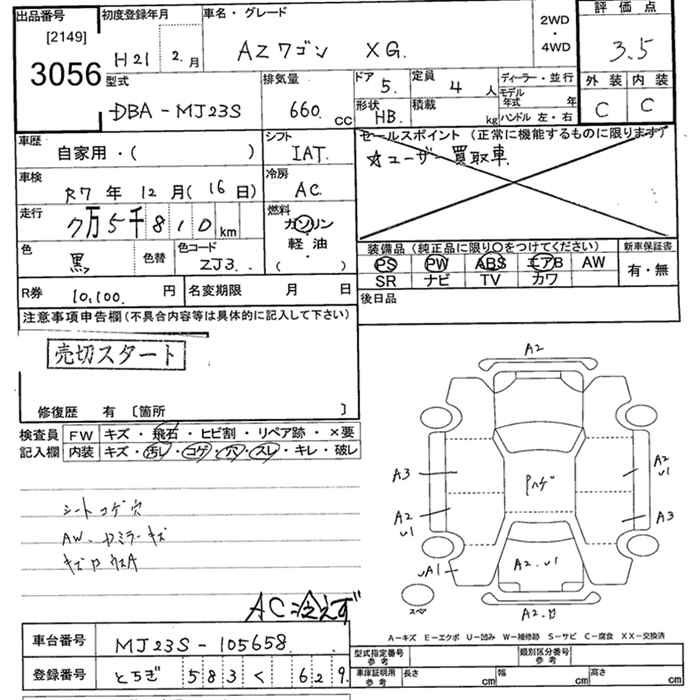 出品番号
[2149]
3056
初度登録年月
H21 2.月
車名・グレード
AZワゴン XG.
2WD
・
4WD
評価点
3.5
外装 内装
C C
型式
DBA-MJ23S
排気量
660. CC
ドア
5.
定員
4 人
形状
HB.
積載
kg
ディーラー・並行
モデル
年式 年
ハンドル 左・右
車歴
自家用・( )
シフト
IAT.
セールスポイント (正常に機能するものに限ります)
☆ユーザー買取車.
車検
R7 年 12 月 (16 日)
冷房
AC
走行
7万5千810 km
燃料
ガソリン
・
軽油
・
( )
色
黒
色替
色コード
ZJ3
装備品 (純正品に限り〇をつけてください)
PS PW ABS エアB AW
SR ナビ TV カワ
新車保証書
有・無
R券 10,100. 円
名変期限 月 日
後日品
注意事項申告欄 (不具合内容等は具体的に記入して下さい)
売切スタート
修復歴 有 [箇所 ]
検査員
記入欄
FW キズ・飛石・ヒビ割・リペア跡・×要
内装 キズ・汚レ・コゲ・穴・スレ・キレ・破レ
シートコゲ穴
AW、ドミラーキズ
AC冷えず
A2
A3
A2
U1
UA1
Pハゲ
A2
U1
A3
A2.U1
スペ
A-キズ E-エクボ U-凹み W-補修跡 S-サビ C-腐食 XX-交換済
車台番号 MJ23S-105658
登録番号 とちぎ 583 く 629
型式指定番号
参考
類別区分番号
参考
車庫証明用
参考
長さ cm 幅 cm 高さ cm